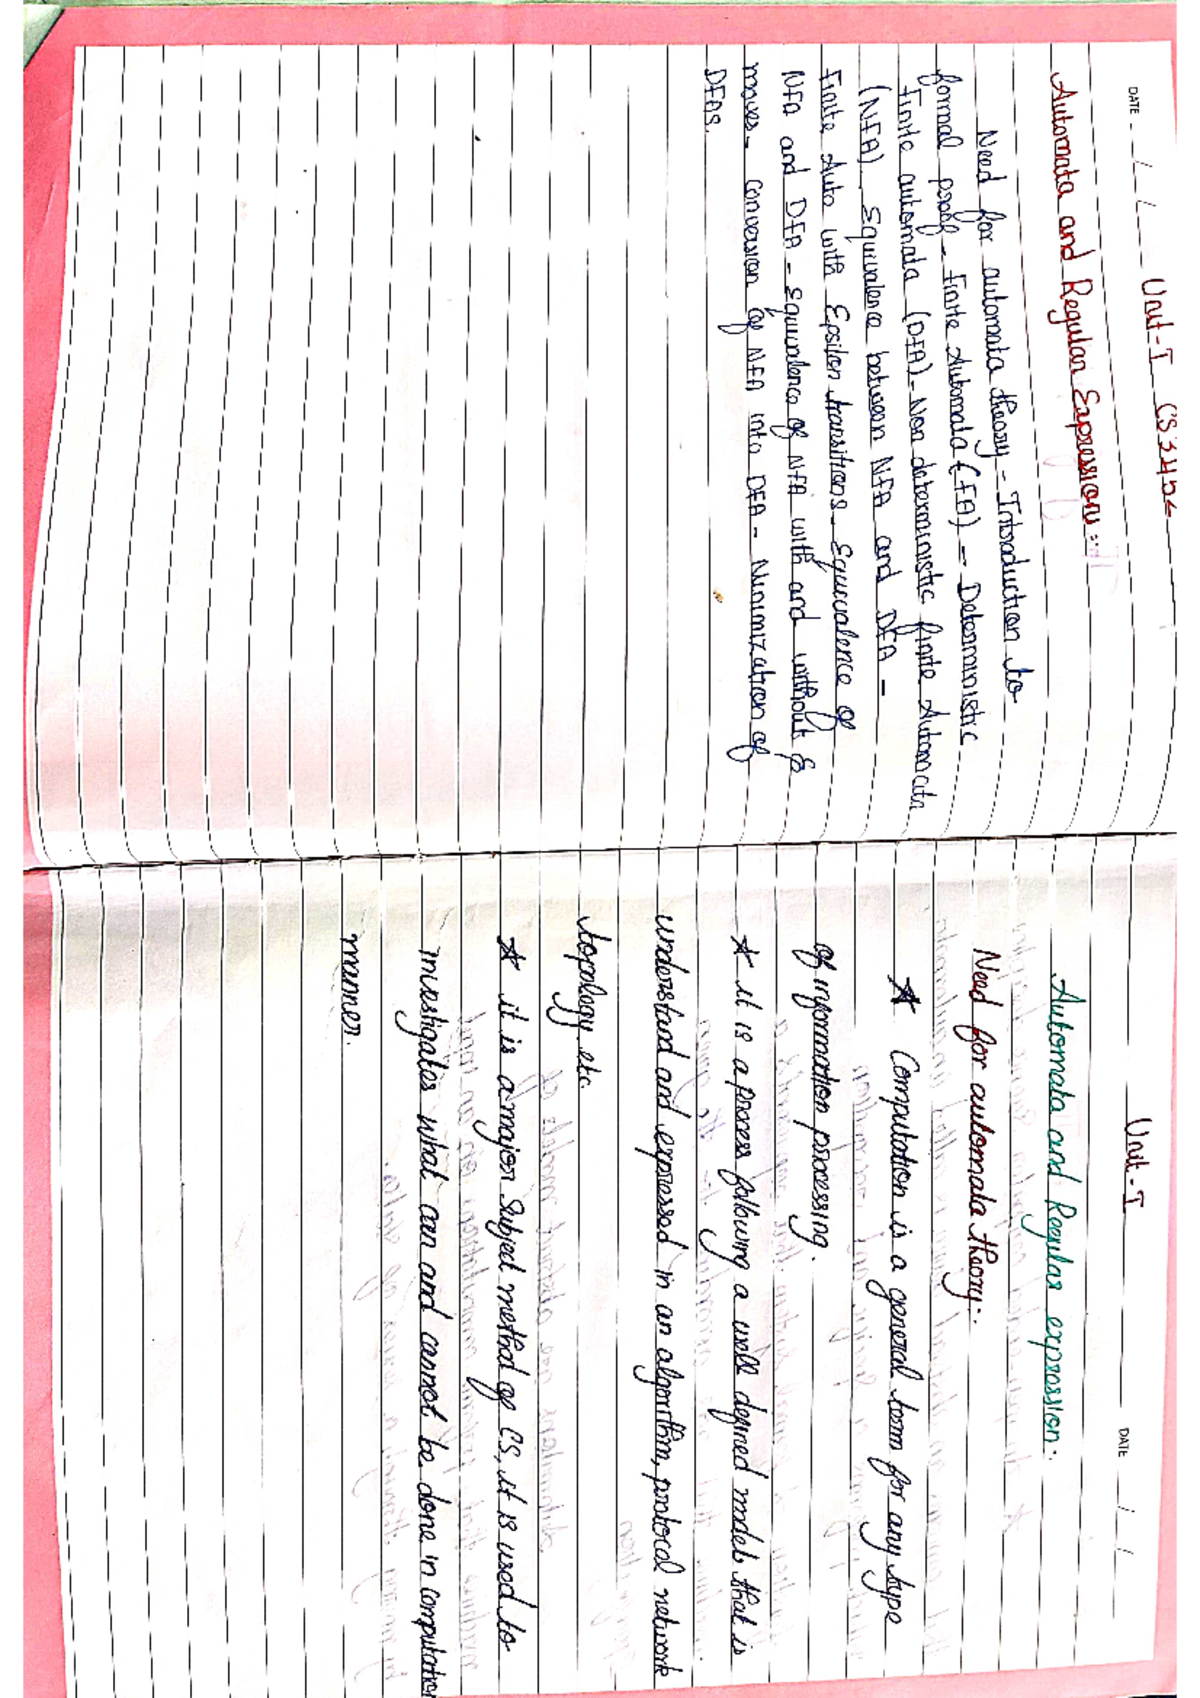 DATE / / Unit-I CS3452
Automata and Regular Expression:-
Need for automata theory - Introduction to
formal proof - Finite Automata (FA) - Deterministic
Finite automata (DFA) - Non deterministic finite Automata
(NFA). Equivalence between NFA and DFA -
Finite Auto with Epsilon transitions - Equivalence of
NFA and DFA - Equivalence of NFA with and without ε
moves - conversion of NFA into DFA - Minimization of
DFAs.
Unit-I DATE / /
Automata and Regular expression:-
Need for automata theory:-
★ Computation is a general term for any type
of information processing.
★ it is a process following a well defined models that is
understand and expressed in an algorithm, protocal network
topology etc.
★ it is a major Subject method of CS, it is used to
investigates what can and cannot be done in computation
manner.